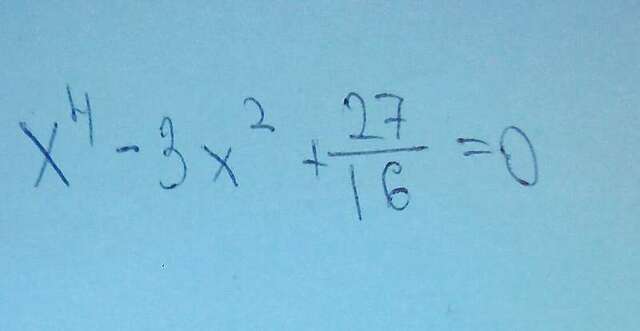 x⁴ - 3x² + 27/16 = 0